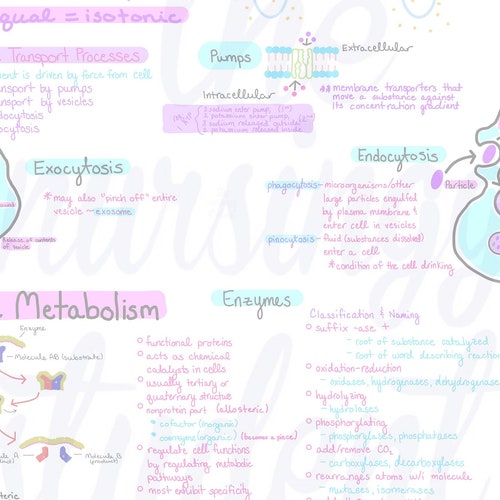 qual = isotonic
Transport Processes
ment is driven by force from cell
nsport by pumps
nsport by vesicles
docytosis
ocytosis
Pumps
Extracellular
Intracellular
2 potassium enter pump
3 sodium released outside
2 potassium released inside
** membrane transporters that
move a substance against
its concentration gradient
Exocytosis
*may also "pinch off" entire
vesicle - exosome
Release of contents
of vesicle
Endocytosis
phagocytosis - microorganisms/other
large particles engulfed
by plasma membrane &
enter cell in vesicles
pinocytosis - fluid (substances dissolved)
enter a cell
*condition of the cell drinking
Particle
Metabolism
Enzyme
Molecule AB (substrate)
Molecule B
(product)
Enzymes
functional proteins
acts as chemical
catalysts in cells
usually tertiary or
quaternary structure
nonprotein part (allosteric)
* cofactor (inorganic)
* coenzyme (organic) (becomes a piece)
regulate cell functions
by regulating metabolic
pathways
most exhibit specificity
Classification & Naming
suffix -ase +
- root of substance catalyzed
- root of word describing reaction
oxidation-reduction
- oxidases, hydrogenases, dehydrogenases
hydrolyzing
- hydrolases
phosphorylating
- phosphorylases, phosphatases
add/remove CO₂
- carboxylases, decarboxylases
rearranges atoms w/i molecule
- mutases, isomerases